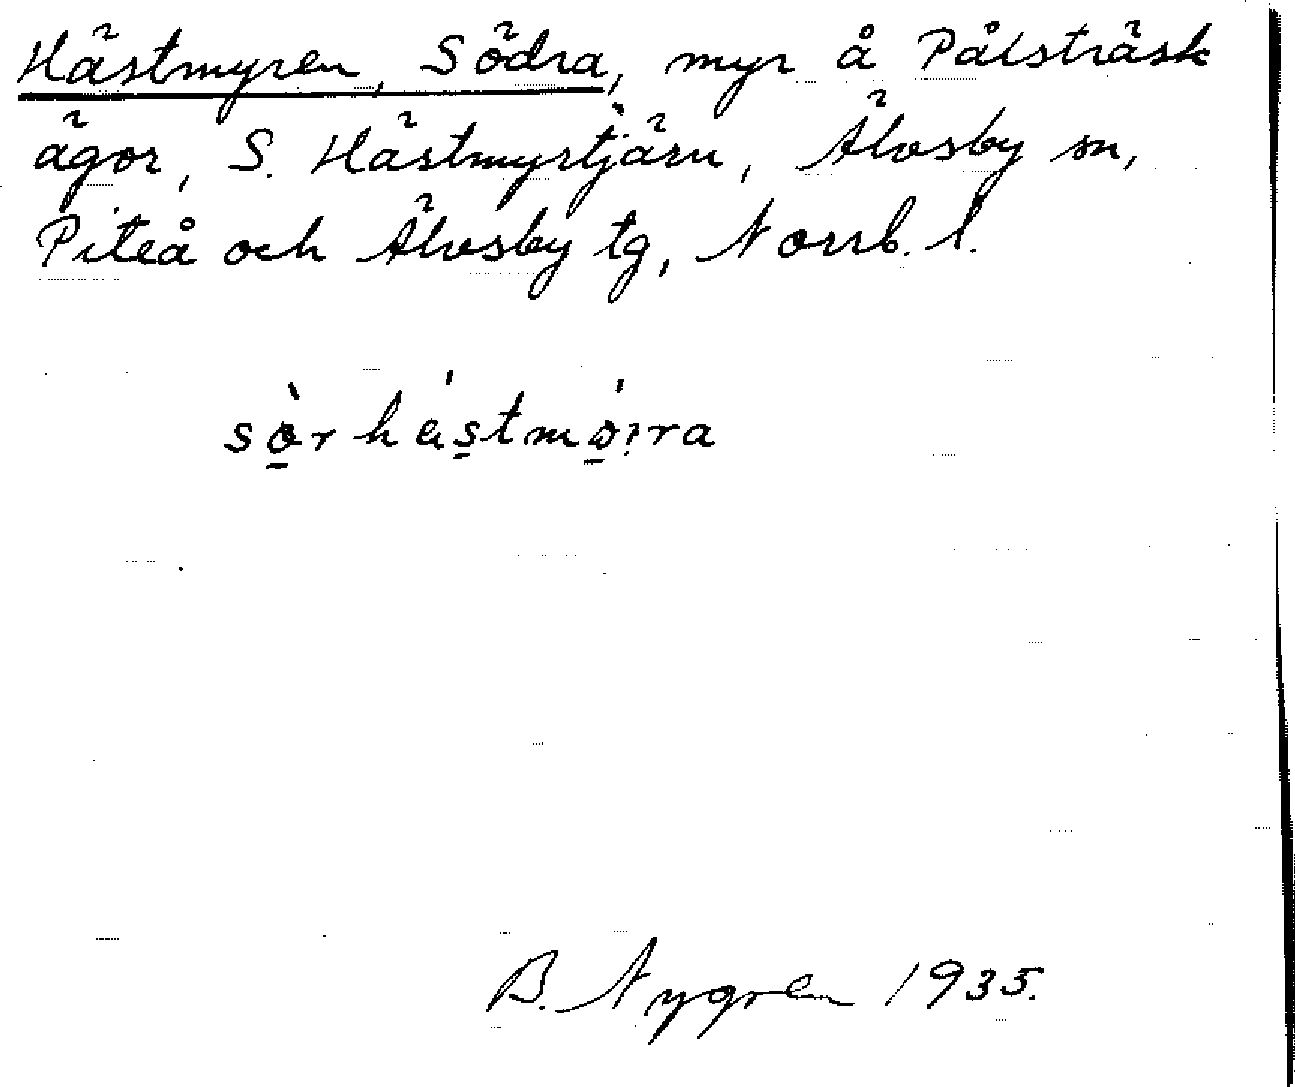 Hästmyren, Södra, myr å Pålsträsk
ägor, S. Hästmyrtjärn, Älvsby sn,
Piteå och Älvsby tg, Norrb. l.
sò̱rhás̱tmó̱ira
B. Nygren 1935.